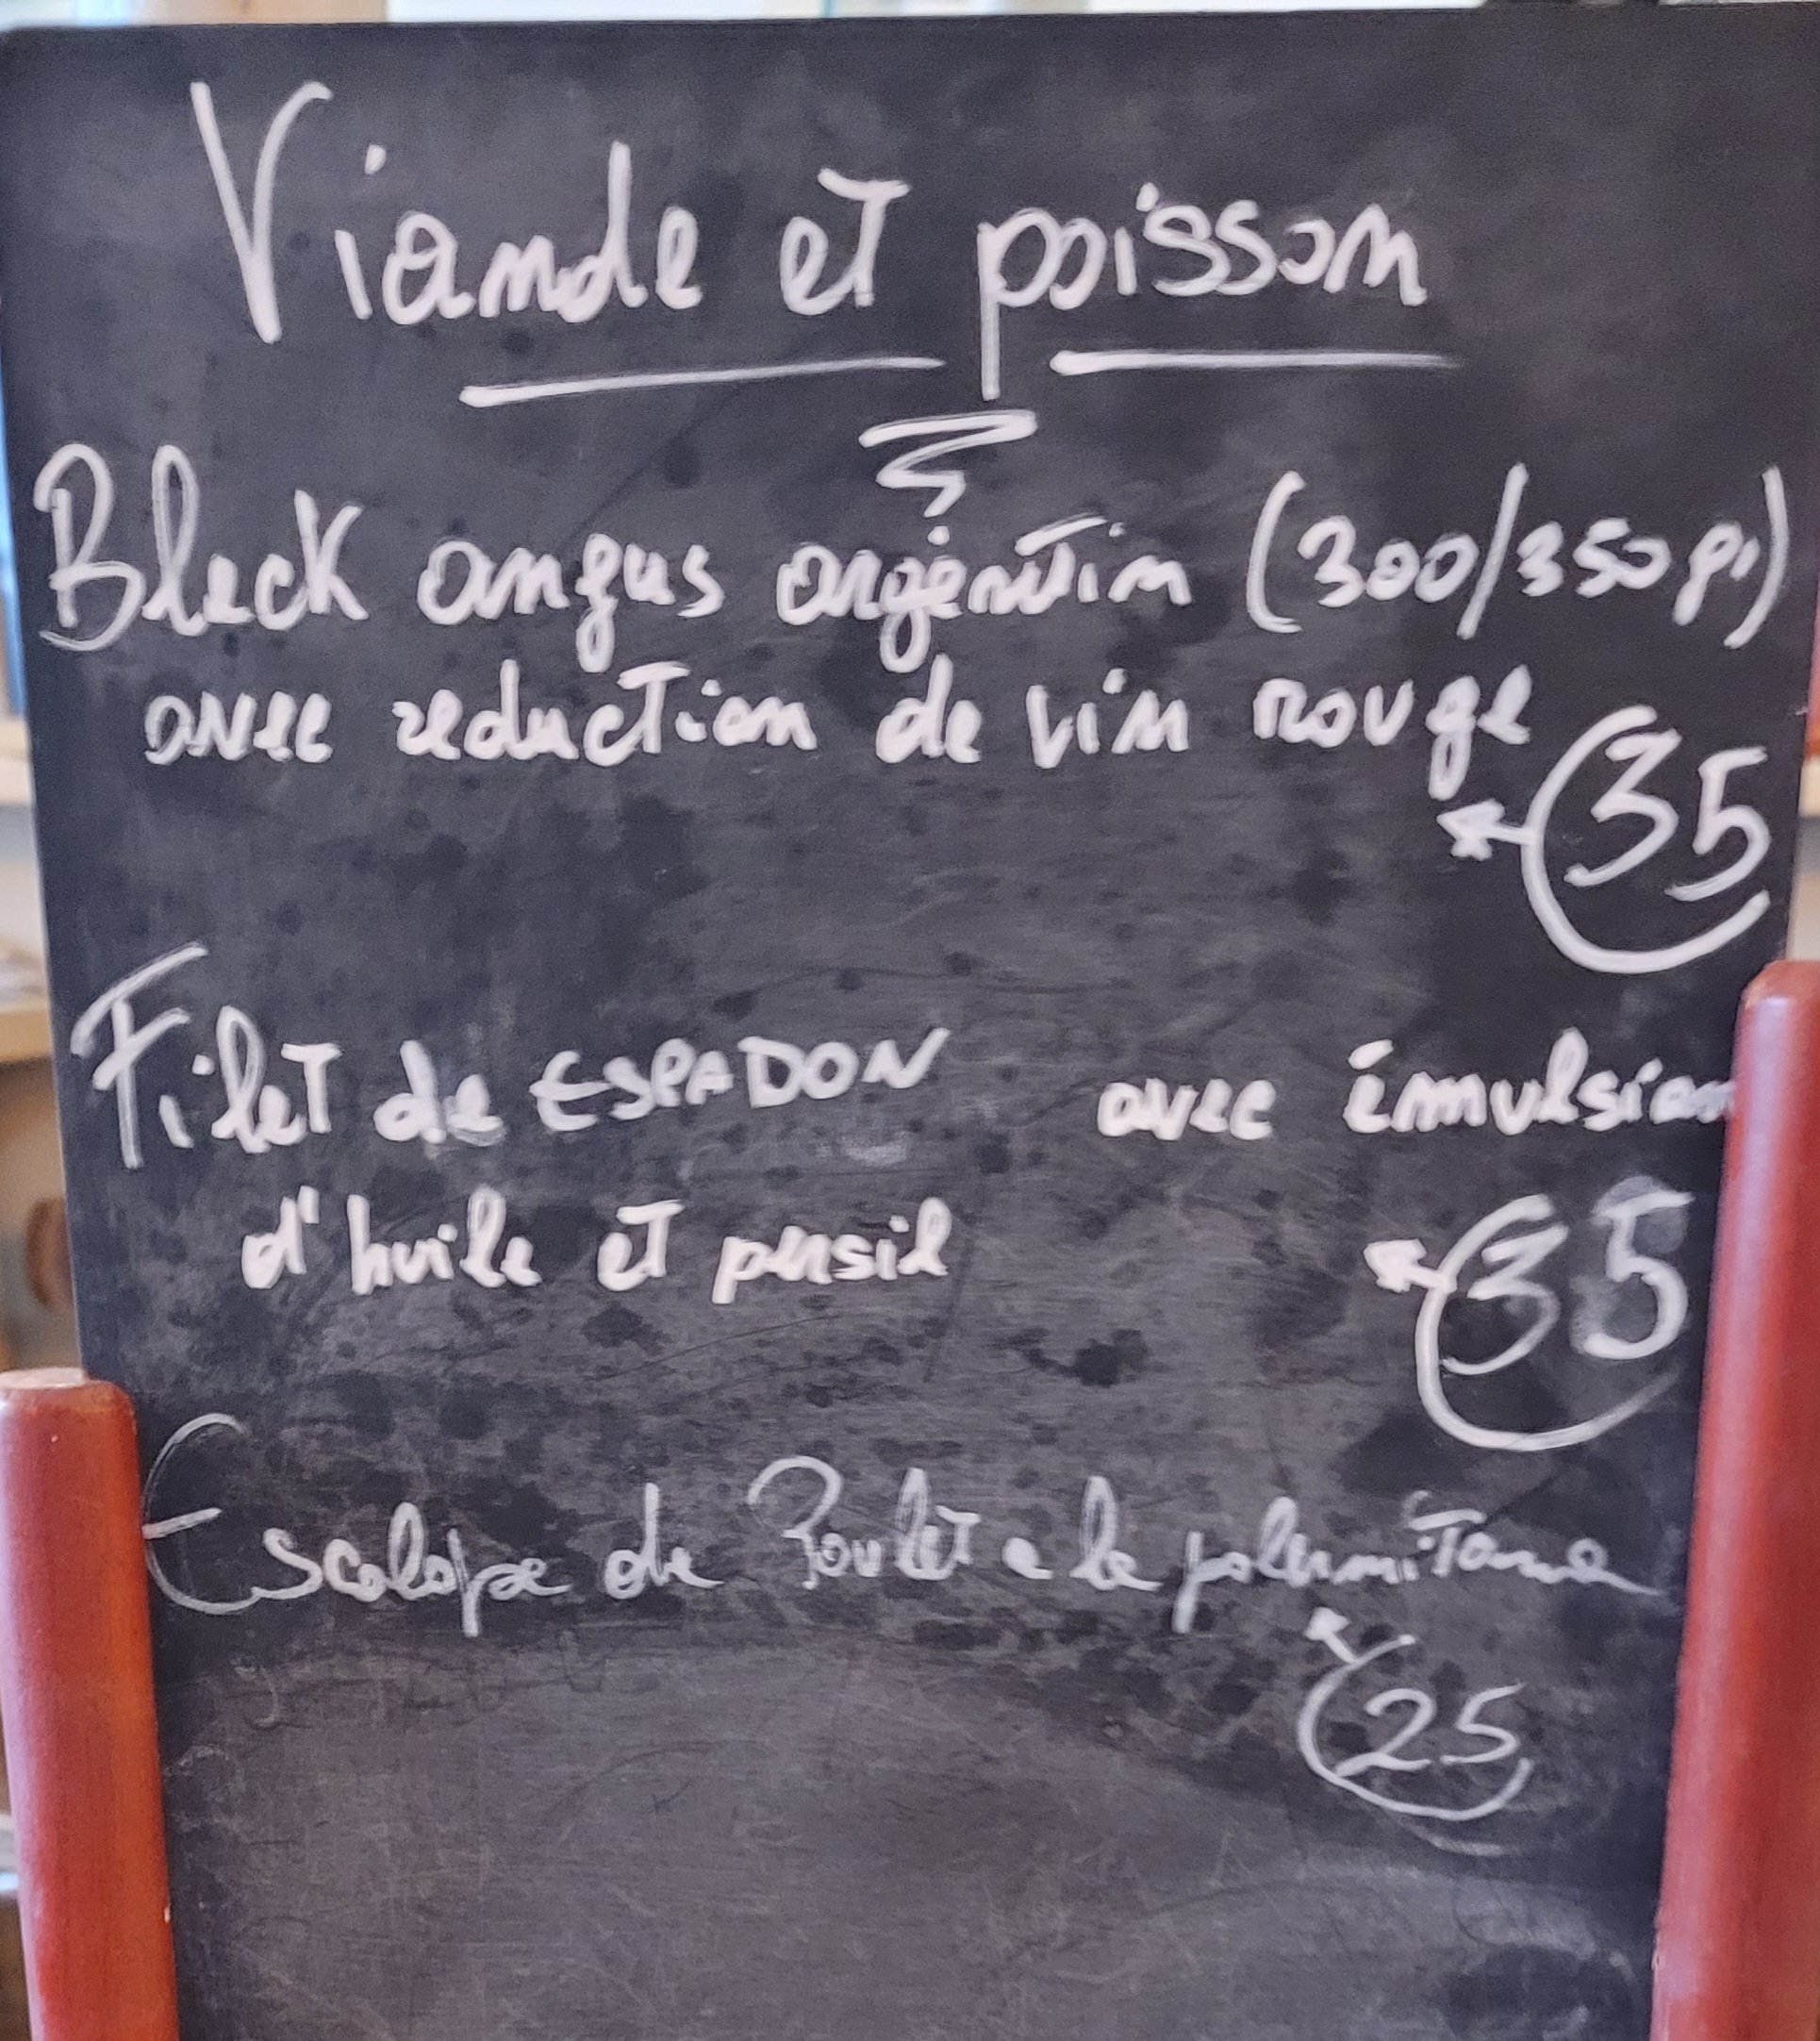 Viande et poisson
Black angus argentin (300/350 gr)
avec reduction de vin rouge
35
Filet de ESPADON avec émulsion
d'huile et persil
35
Escalope de Poulet a la palermitana
25